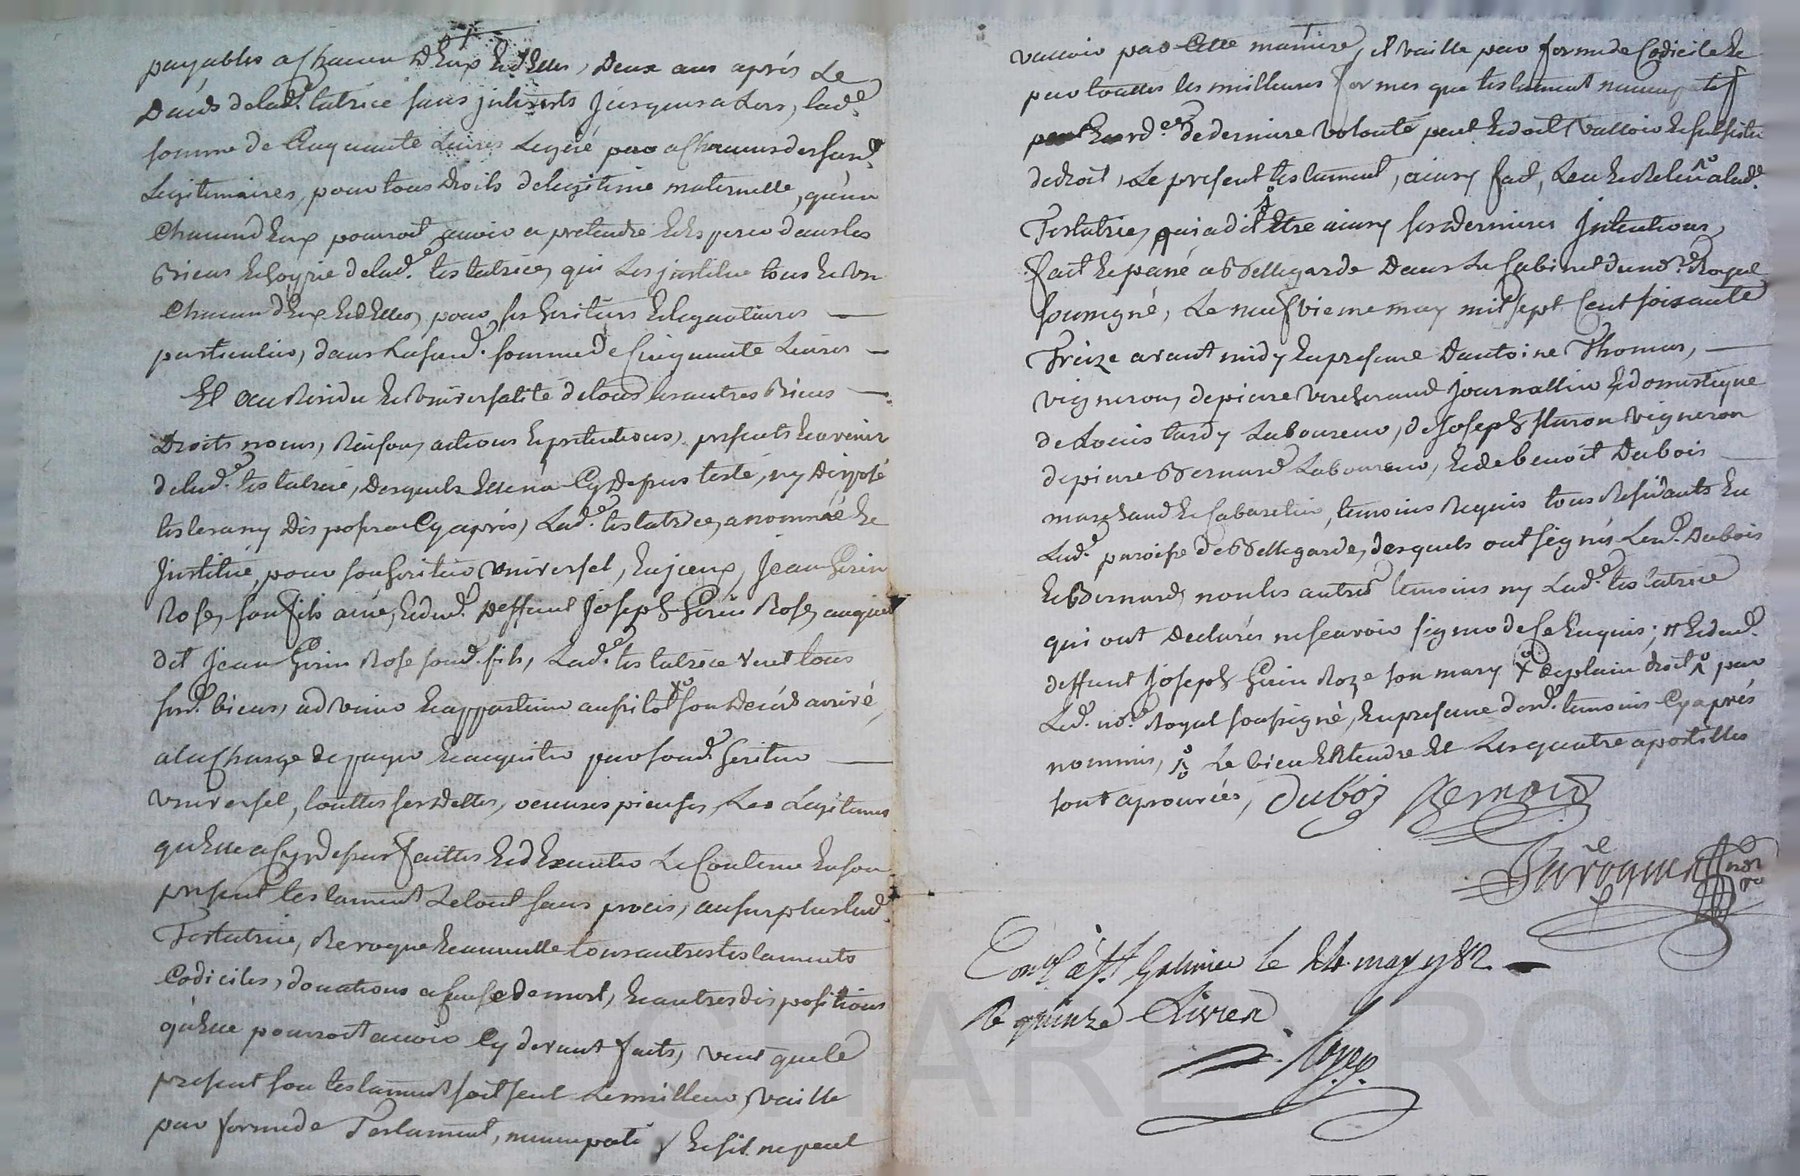 payables a chacun d'eux et d'elles, deux ans après le
Décés de lad.e tatrice sans jnterests jusques a lors, lad.e
somme de Cinquante Livres Leguée par a chacun desd.
Legitimaires, pour tous droits de legitime maternelle, qu'un
Chacun d'eux pourroit avoir et pretendre dans les
Biens et hoyrie de lad.e testatrice, qui les jnstitue tous et un
Chacun d'eux et d'elles, pour ses heritiers et legataires
particuliers, dans lasusd. somme de Cinquante Livres
Et au Residu et Vniversalité de tous ses autres Biens
Droits noms, Raisons, actions et pretentions, presents et avenir
de lad.e testatrice, desquels Elle n'a Cy Depus testé, ny Disposé
testera ny Disposera Cy après, Lad.e testatrice, a nommé et
Jnstitué, pour son heritier Vniversel, jean Girin
Roze, son fils ainé, et dud. deffunt Joseph Girin Roze, auquel
dit Jean Girin Roze soud. fils, Lad.e testatrice veut tous
sesd. biens, advenir et appartenir aussitot son décéd arrivé,
a la Charge de payer et acquiter par soud. heritier
Vniversel, touttes ses dettes, oeuvres pieuses, Les Legitimes
qu'Elle a Cy depus faittes et d'Executer Le Contenu en son
present testament Le tout sans procès, au surplus lad.
Testatrice, Revoque et annulle tous autres testaments
Codiciles, donations a cause de mort, et autres dispositions
qu'elle pourroit avoir Cy devant faits, veut que le
present son testament soit seul Le meilleur, vaille
par forme de Testament, nuncupatif et s'il ne peut
valloir par Cette maniere, il vaille par forme de Codicile et
par touttes les meilleures formes que testament nuncupatif
et ord.ce de derniere volonté peut et doit valloir et subsister
de droit, Le present testament, ainsy fait, Leu et Releu a lad.e
Testatrice, qui a dit Etre ainsy ses dernieres Jntentions,
fait et passé a Bellegarde Dans Le Cabinet du no.re Royal
soussigné, Le neufvieme may mil sept Cent soixante
Treize avant midy En presence d'antoine Thomas,
vigneron, de pierre Vercherand journallier et domestique
de Louis tardy Laboureur, de joseph vigneron
de pierre Bernard Laboureur, et de benoit Dubois
marchand et Cabaretier, temoins Requis tous Residants En
Lad.e paroisse de Bellegarde, desquels ont signés Lesd. Dubois
et Bernard, non les autres temoins ny Lad.e testatrice
qui ont declarés ne scavoir signer de ce Enquis; et dud.
deffunt joseph Girin Roze son mary de plein droit par
Led. no.re Royal soussigné, En presence desd. temoins Cy après
nommés, Le bien Entendre et Les quatre apostilles
sont aprouvées, Duboi Bernard
Con.lé à St Galmier le 24 may 1782
R quinze Livres
CHAREYRON